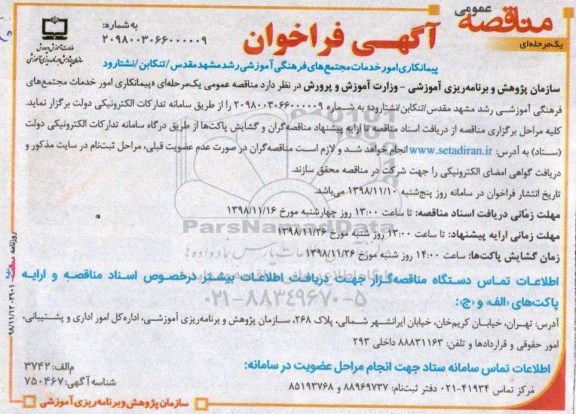 مناقصه عمومی
یک‌مرحله‌ای
آگهی فراخوان
به شماره:
۲۰۹۸۰۰۳۰۶۶۰۰۰۰۰۹
پیمانکاری امور خدمات مجتمع‌های فرهنگی آموزشی رشد مشهد مقدس /تنکابن /نشتارود
وزارت آموزش و پرورش
سازمان پژوهش و برنامه‌ریزی آموزشی
سازمان پژوهش و برنامه‌ریزی آموزشی - وزارت آموزش و پرورش در نظر دارد مناقصه عمومی یک‌مرحله‌ای «پیمانکاری امور خدمات مجتمع‌های
فرهنگی آموزشی رشد مشهد مقدس/تنکابن/نشتارود» به شماره ۲۰۹۸۰۰۳۰۶۶۰۰۰۰۰۹ را از طریق سامانه تدارکات الکترونیکی دولت برگزار نماید.
کلیه مراحل برگزاری مناقصه از دریافت اسناد مناقصه تا ارایه پیشنهاد مناقصه‌گران و گشایش پاکت‌ها از طریق درگاه سامانه تدارکات الکترونیکی دولت
(ستاد) به آدرس: www.setadiran.ir انجام خواهد شد و لازم است مناقصه‌گران در صورت عدم عضویت قبلی، مراحل ثبت‌نام در سایت مذکور و
دریافت گواهی امضای الکترونیکی را جهت شرکت در مناقصه محقق سازند.
تاریخ انتشار فراخوان در سامانه روز پنج‌شنبه ۱۳۹۸/۱۱/۱۰ می‌باشد.
مهلت زمانی دریافت اسناد مناقصه: تا ساعت ۱۳:۰۰ روز چهارشنبه مورخ ۱۳۹۸/۱۱/۱۶
مهلت زمانی ارایه پیشنهاد: تا ساعت ۱۳:۰۰ روز شنبه مورخ ۱۳۹۸/۱۱/۲۶
زمان گشایش پاکت‌ها: ساعت ۱۴:۰۰ روز شنبه مورخ ۱۳۹۸/۱۱/۲۶
ParsNamadData
۰۲۱-۸۸۳۴۹۶۷۰-۵
اطلاعات تماس دستگاه مناقصه‌گزار جهت دریافت اطلاعات بیشتر درخصوص اسناد مناقصه و ارایه
پاکت‌های «الف» و «ج»:
آدرس: تهران، خیابان کریم‌خان، خیابان ایرانشهر شمالی، پلاک ۲۶۸، سازمان پژوهش و برنامه‌ریزی آموزشی، اداره‌کل امور اداری و پشتیبانی،
امور حقوقی و قراردادها و تلفن: ۸۸۸۳۱۱۶۳ داخلی ۲۹۳
اطلاعات تماس سامانه ستاد جهت انجام مراحل عضویت در سامانه:
مرکز تماس ۴۱۹۳۴-۰۲۱ دفتر ثبت‌نام: ۸۸۹۶۹۷۳۷ و ۸۵۱۹۳۷۶۸
م‌الف: ۳۷۴۲
شناسه آگهی: ۷۵۰۴۶۷
سازمان پژوهش و برنامه‌ریزی آموزشی